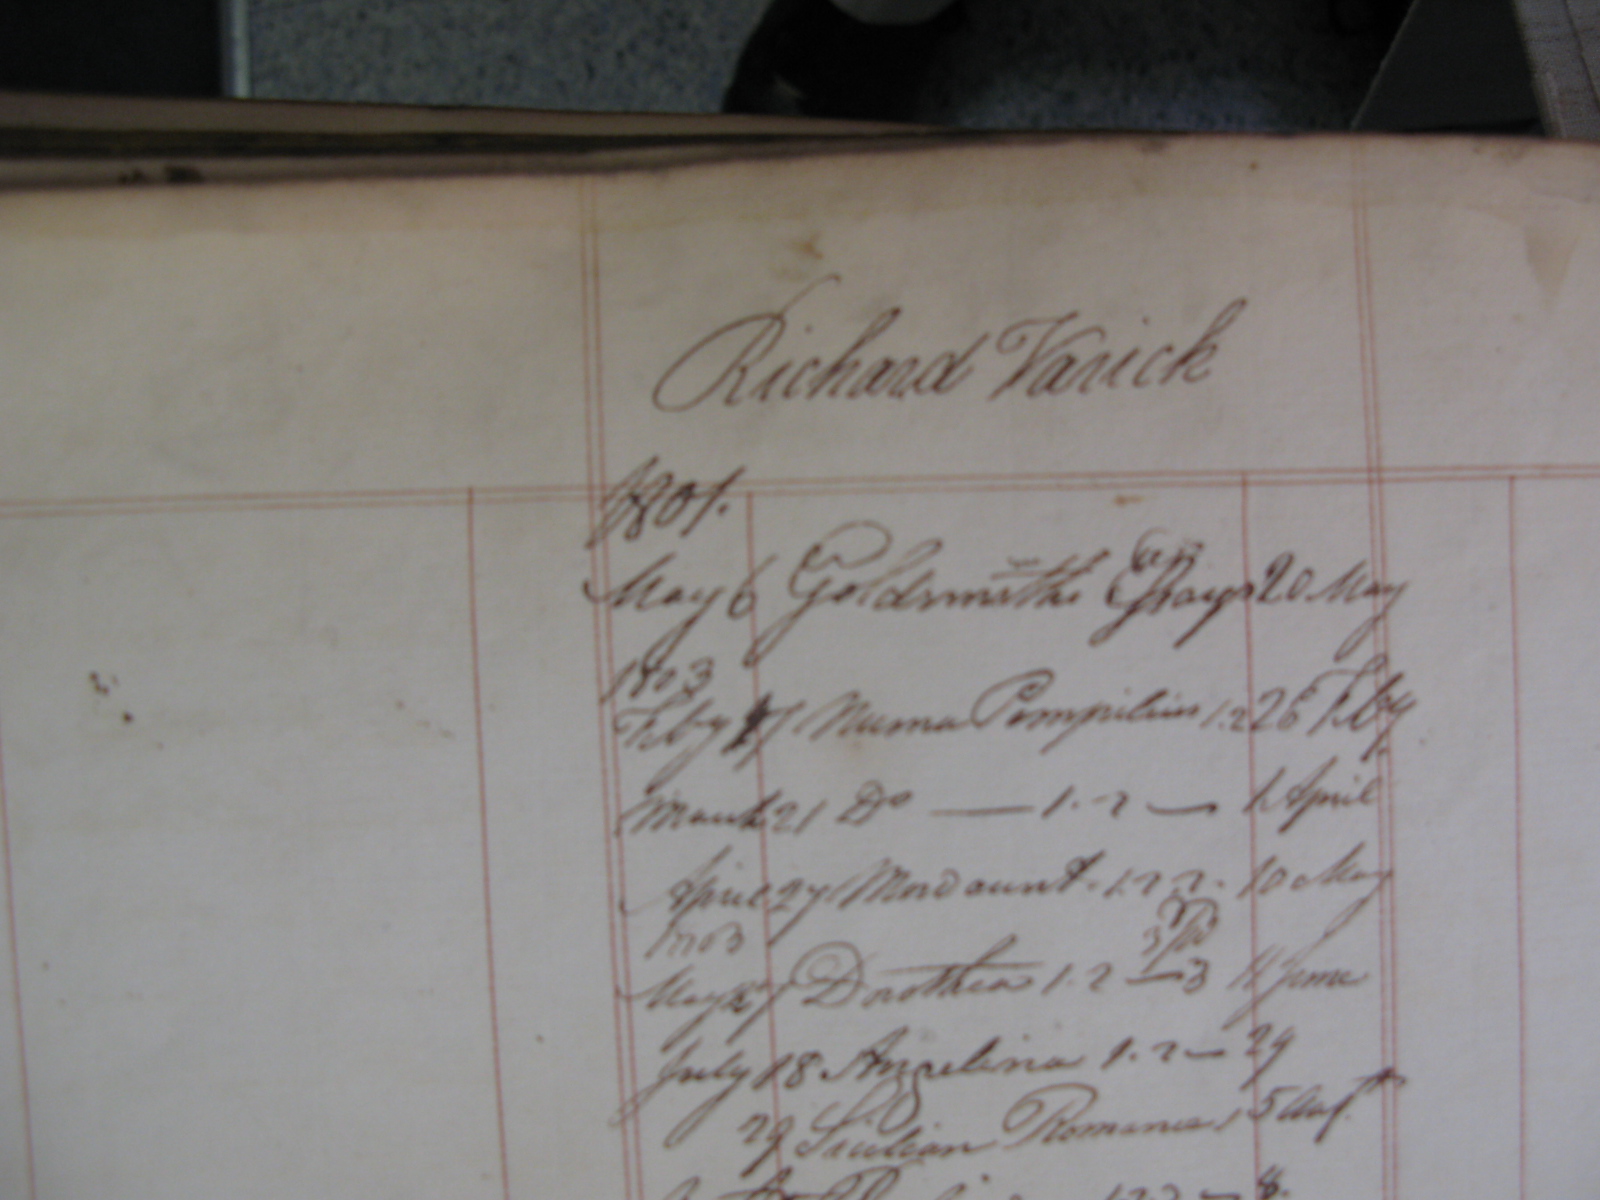 Richard Varick
1801.
May 6 Goldsmiths Essays 20 May
1803
Feby 17 Numa Pompilius 1.2 26 Feby
March 21 Do — 1.-2 — 1 April
April 27 Mordaunt. 1.2.3. 10 May
1803
May 27 Dorothea 1.2 — 3 11 June
July 18 Angelina 1.2 — 29
29 Sicilian Romance 1 5 Augt